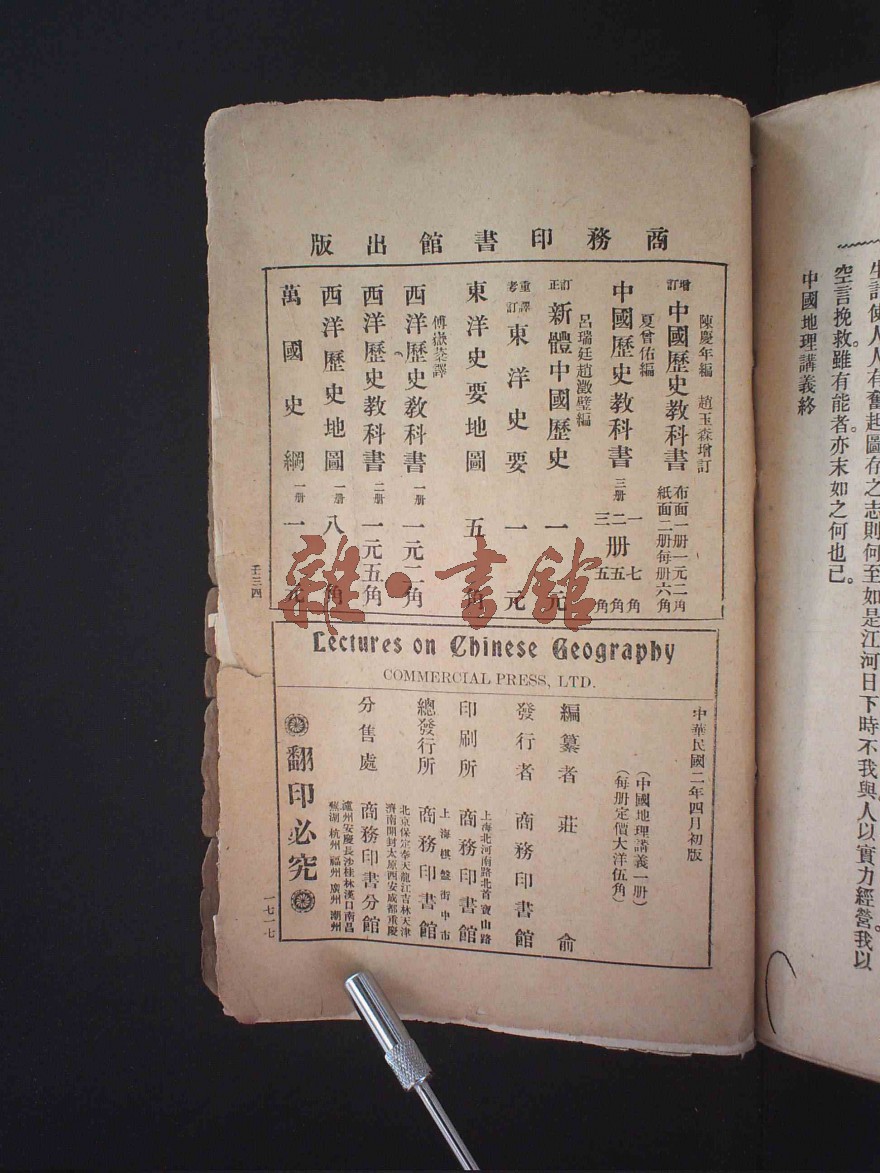 商務印書館出版
陳慶年編 趙玉森增訂
增訂中國歷史教科書 布面一册一元二角 紙面二册每册六角
夏曾佑編
中國歷史教科書 三册 一 七角 二册五角 三 五角
呂瑞廷趙澂璧編
訂正新體中國歷史 一元
重譯考訂東洋史要 一元
東洋史要地圖 五角
傅嶽棻譯
西洋歷史敎科書 一册 一元二角
西洋歷史敎科書 二册 一元五角
西洋歷史地圖 一册 八角
萬國史綱 一册 一元
壬三四
Lectures on Chinese Geography
COMMERCIAL PRESS, LTD.
中華民國二年四月初版
(中國地理講義一册)
(每册定價大洋伍角)
編纂者 莊俞
發行者 商務印書館
上海北河南路北首寶山路
印刷所 商務印書館
上海棋盤街中市
總發行所 商務印書館
北京保定奉天龍江吉林天津
濟南開封太原西安成都重慶
分售處 商務印書分館
瀘州安慶長沙桂林漢口南昌
蕪湖杭州福州廣州潮州
翻印必究
一七一七
生計使人人有奮起圖存之志則何至如是江河日下時不我與人以實力經營我以
空言挽救雖有能者亦末如之何也已
中國地理講義終
雜·書館